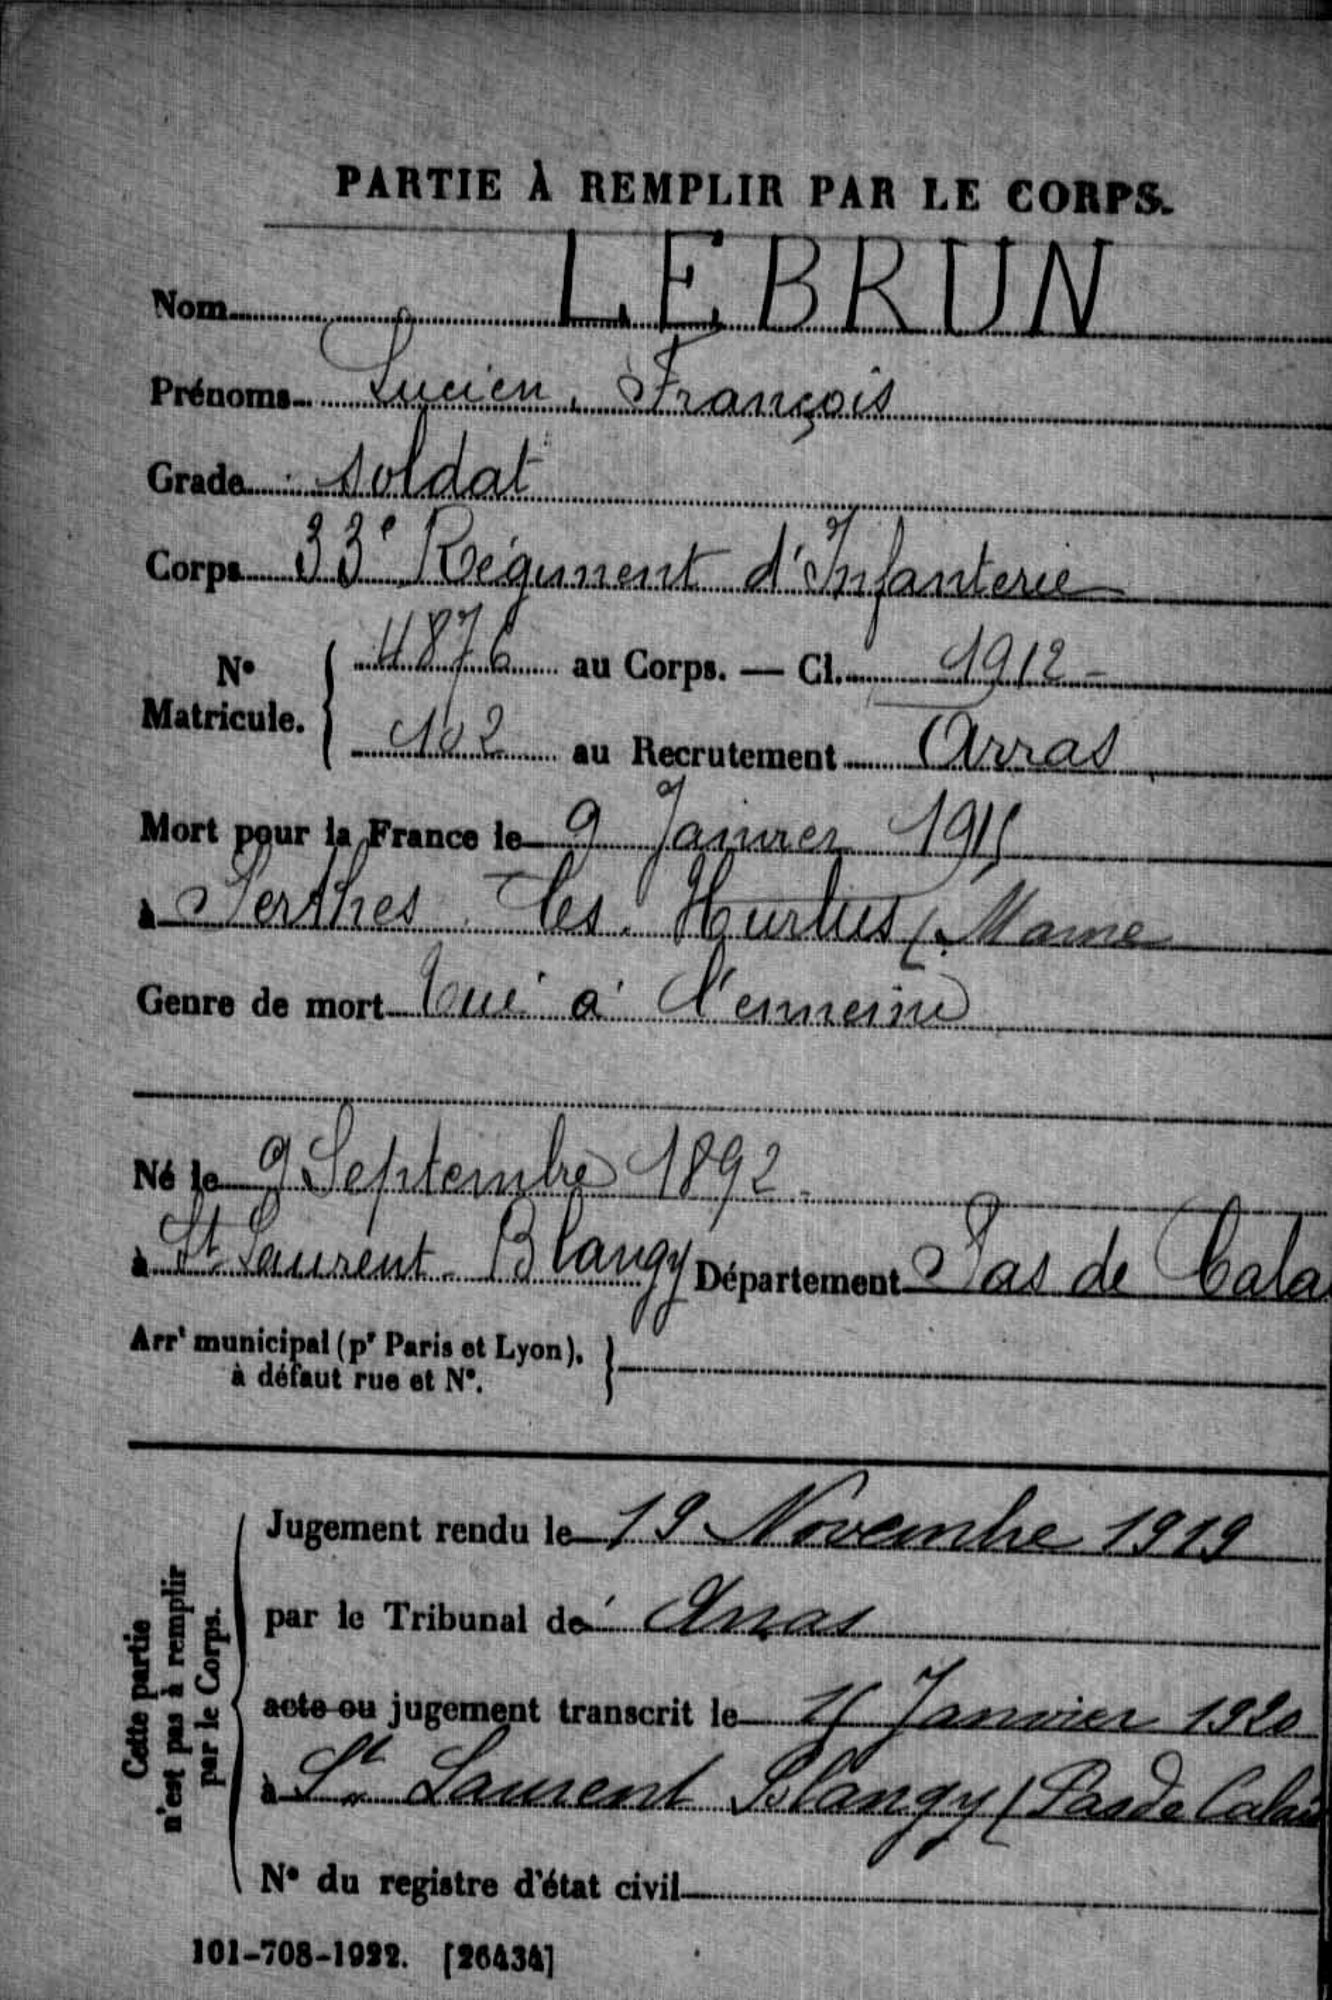 PARTIE À REMPLIR PAR LE CORPS.
Nom LEBRUN
Prénoms Lucien, François
Grade soldat
Corps 33e Régiment d'Infanterie
No Matricule. { 4876 au Corps. — Cl. 1912 -
102 au Recrutement Arras
Mort pour la France le 9 Janvier 1915
à Perthes les Hurlus (Marne
Genre de mort Tué à l'ennemi
Né le 9 Septembre 1892.
à St Laurent - Blangy Département Pas de Cala
Arrt municipal (pr Paris et Lyon), }
à défaut rue et No.
Cette partie
n'est pas à remplir
par le Corps.
Jugement rendu le 19 Novembre 1919
par le Tribunal de Arras
acte ou jugement transcrit le 15 Janvier 1920
à St Laurent Blangy (Pas de Calais
No du registre d'état civil
101-708-1922. [26434]